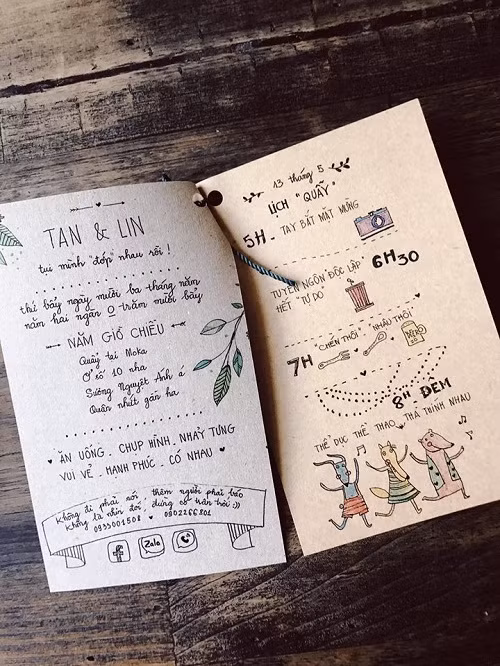 TAN & LIN
tui mình "đớp" nhau rồi !
thứ bảy ngày mười ba tháng năm
năm hai ngàn 0 trăm mười bảy
NĂM GIỜ CHIỀU
Quẩy tại Moka
Ở số 10 nha
Sương Nguyệt Ánh á
Quận nhứt gần ha
ĂN UỐNG . CHỤP HÌNH . NHẢY TƯNG
VUI VẺ . HẠNH PHÚC . CÓ NHAU
Không đi phải nói , thêm người phải báo
Không là nhịn đói, đừng có trăn trối :))
0933001508 ♥ 0902266801
f Zalo
13 tháng 5
LỊCH "QUẨY"
5H - TAY BẮT MẶT MỪNG
TUYÊN NGÔN ĐỘC LẬP 6H30
HẾT "TỰ DO"
7H "CHÉN THÔI" NHẬU THÔI
BEER
8H ĐÊM
THỂ DỤC THỂ THAO, THẢ THÍNH NHAU